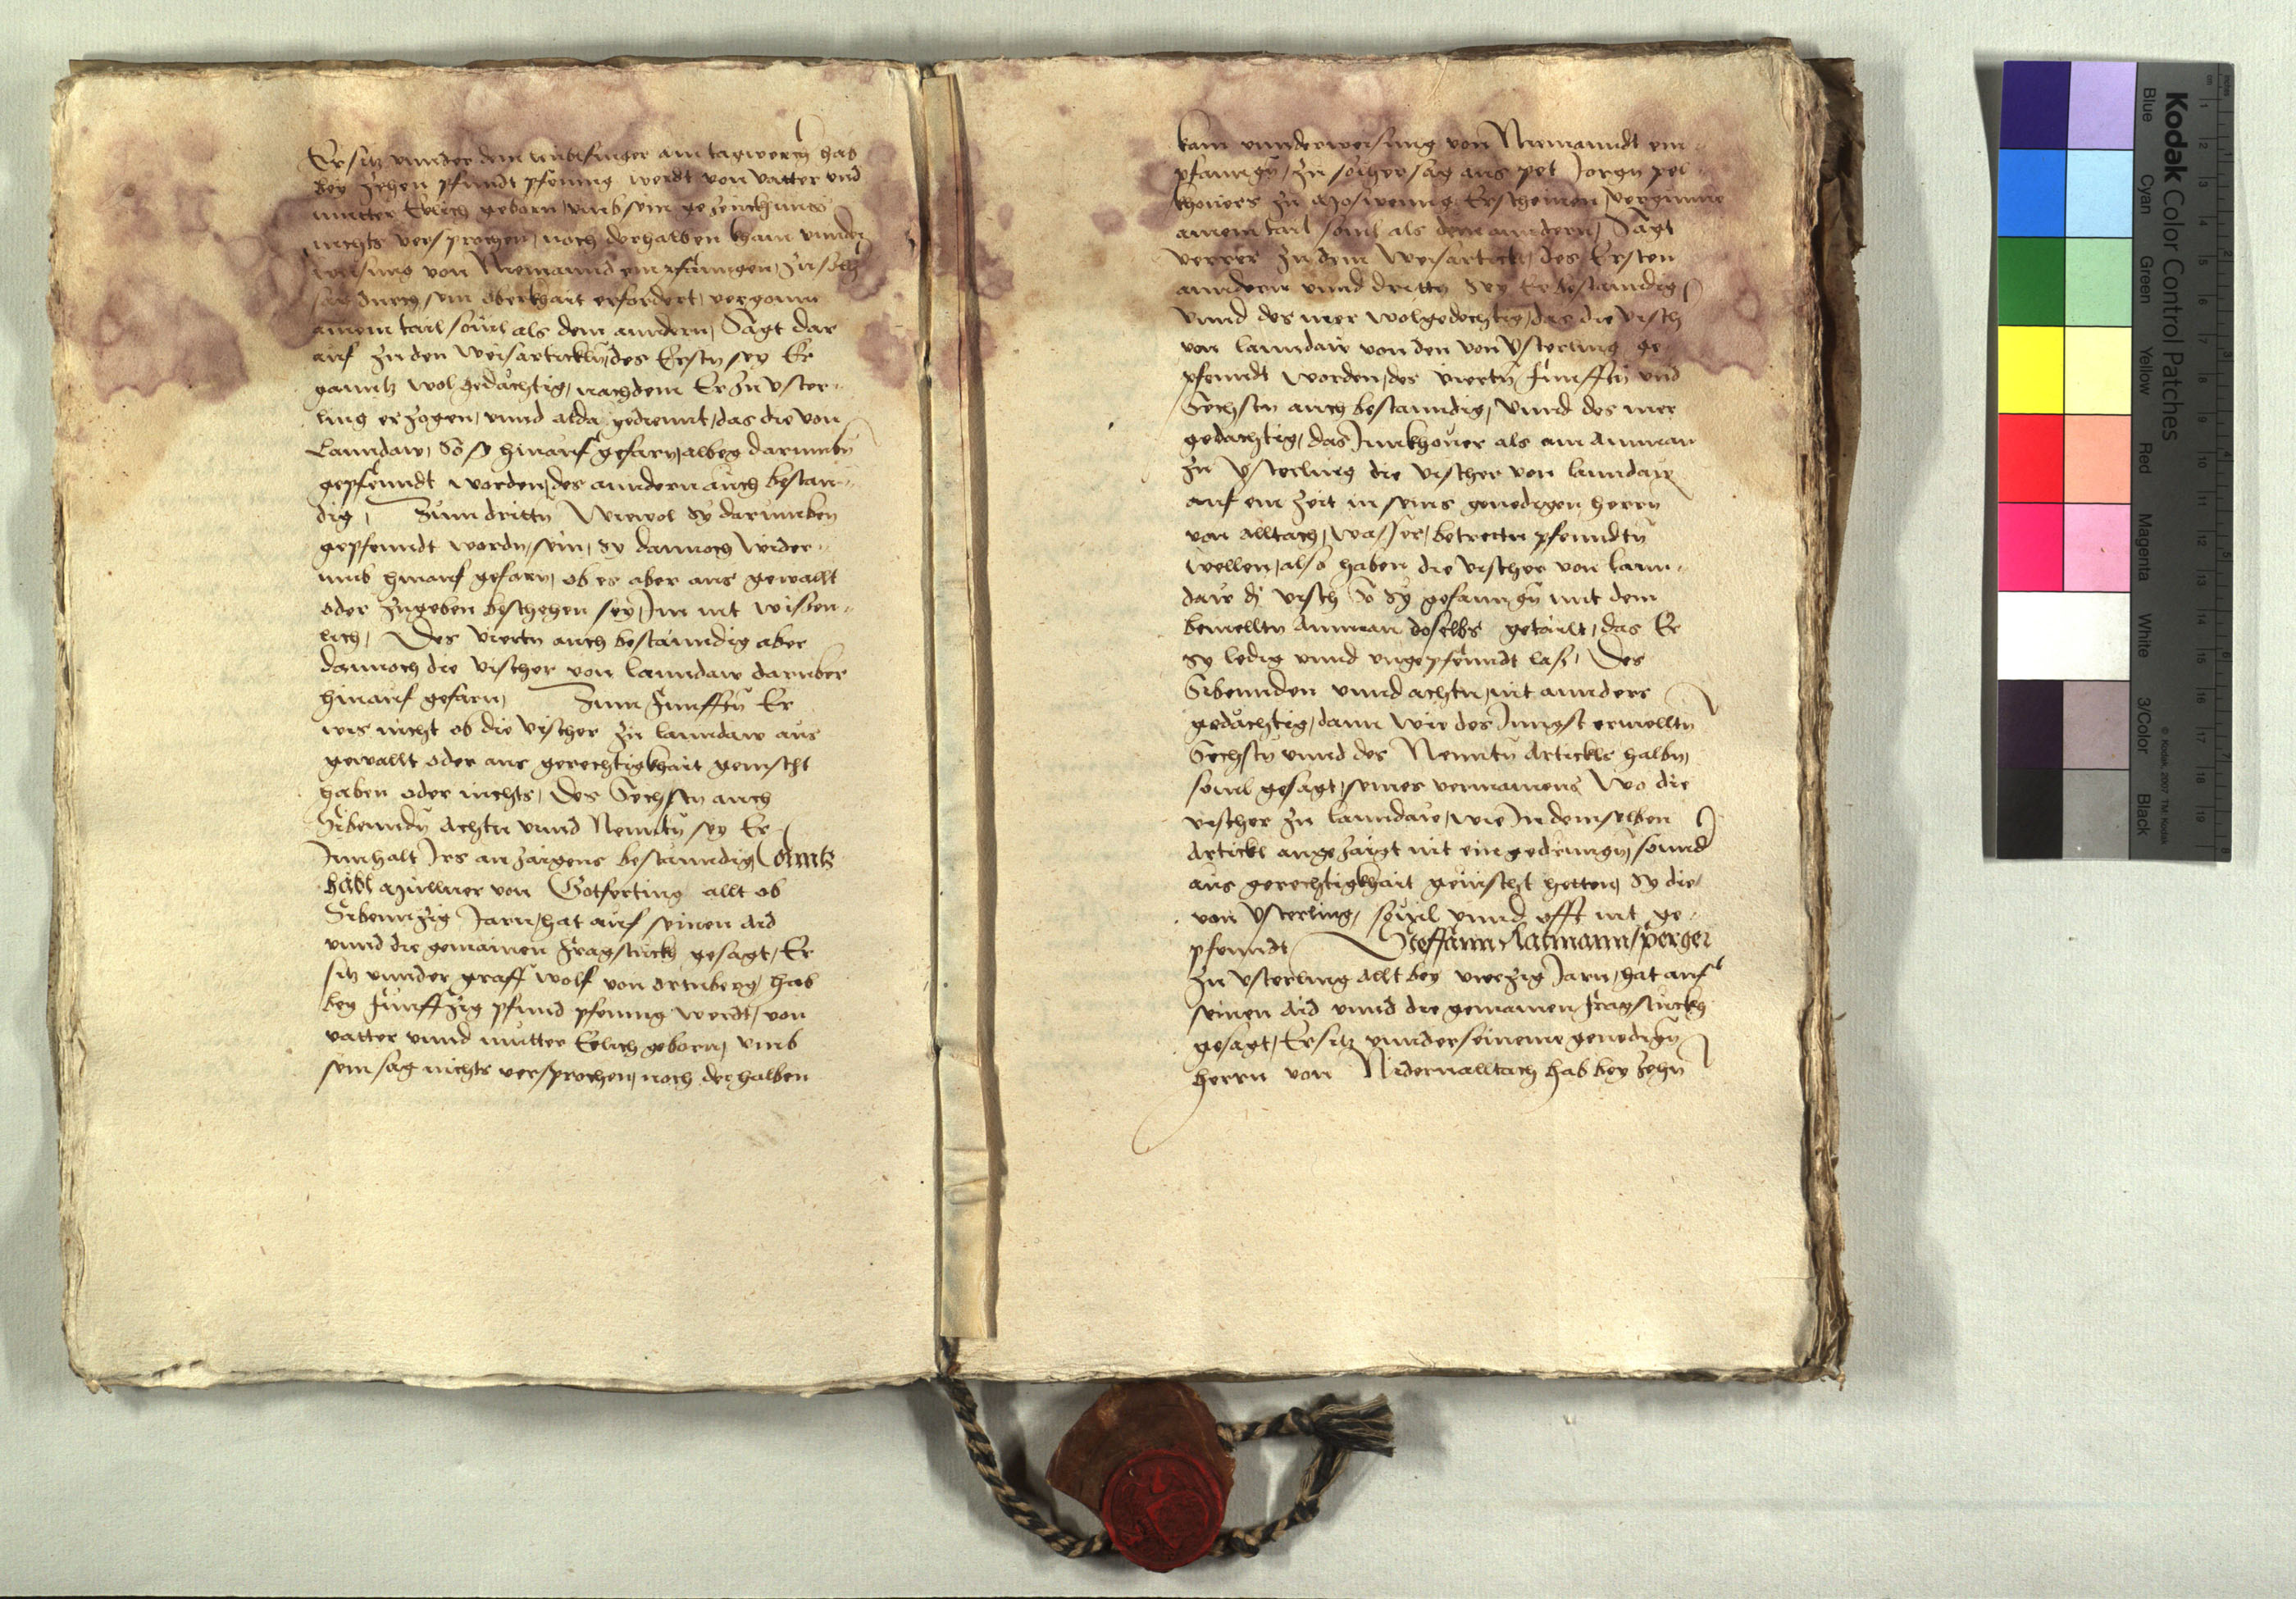 Er sitz vnnder dem am tagwerch hab
bey zehen pfundt pfening werdt von vatter vnd
mutter Eelich geborn, vmb sein gezeuckhnus
nichts versprochen, noch derhalben kham vnnder
weisung von Niemannd empfanngen, zu solch
sag durch sein oberkhait erfordert, vergonn
ainem tail souil als dem andern, Sagt dar
auf zu den Weisarticklñ, des Erstn sey Er
ganntz wolgedächtig, nachdem Er zu vster-
ling erzogen, vnnd alda gediennt, das die von
Lanndaw, So sy hinauf gefarn, albeg darumbn
gepfenndt worden, des anndern auch bestan-
dig, Zum drittn Wiewol sy darumben
gepfenndt wordn, sein, sy dannoch wider-
umb hinauf gefarn, ob es aber aus gewallt
oder zugeben beschehen sey, Im nit wissen-
lich, Des viertn auch bestanndig aber
dannoch die vischer von lanndaw daruber
hinauf gefarn, Zum Funfftn Er
wis nicht ob die vischer zu lanndaw aus
gewallt oder aus gerechtigkhait geuischt
haben oder nichts, Des Sechstn auch
Sibenndn Achtn vnnd Newntn sey Er
Innhalt Irs anzaigens bestanndig Conntz
Müllner von Gotferting allt ob
Sibenntzig Jarn, hat auf seinen aid
vnnd die gemainen Fragstuckh gesagt, Er
sitz vnnder graff Wolf von Ortnberg, hab
bey Funffzig pfund pfening werdt, von
vatter vnnd mutter Eelich geborn, vmb
sein sag nichts versprochen, noch derhalben
kain vnnderweisung von Niemanndt em-
pfanngñ, zu solher sag aus pet Jorgn pel-
khouers zu Moswenng Erscheinen, vergünne
ainem tail souil als dem anndern, Sagt
verrer zu dem Weisartickl, des Ersten
anndern vnnd drittn sey Er bestanndig,
Vnnd des mer wolgedechtig, das die visch
von lanndaw von den von Vsterling ge-
pfenndt worden, des viertn Funfftn vnd
Sechstn auch bestanndig, Vnnd des mer
gedachtig, das Junkhouer als ein Amman
zu Vsterling die vischer von lanndaw
auf ein zeit in seins genedigen herrn
von Alltach, wasser, betrettn pfenndtn
wellen, also haben die vischer von lann-
daw dz visch So sy gefanngn mit dem
bemelltn Amman doselbs getailt, das Er
sy ledig vnnd vngepfenndt lass, Des
Sibennden vnnd achtn, nit annders
gedächtig, dann wie des Jungst ermelltn
Sechstn vnnd des Newntn Artickls halbn,
souil gesagt, seines vermainens Wo die
vischer zu lanndaw, wie In demselben
Artickl angezaigt nit eingedrungn, sonnd
aus gerechtigkhait geuischt hetten, sy die
von Vsterling, souil vnnd offt nit ge-
pfenndt Steffann
zu Vsterling allt bey vierzig Jarn, hat auf
seinen Aid vnnd die gemainen Fragstuckh
gesagt, Er sitz vnnder seinem genedign
herrn von Nidernalltach hab bey zehn
Kodak Color Control Patches
Blue Cyan Green Yellow Red Magenta White 3/Color Black
© Kodak, 2007 TM: Kodak